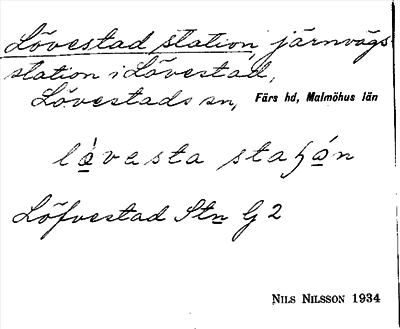 Lövestad station, järnvägs-
station i Lövestad,
Lövestads sn, Färs hd, Malmöhus län
Löfvestad Stn G 2
NILS NILSSON 1934